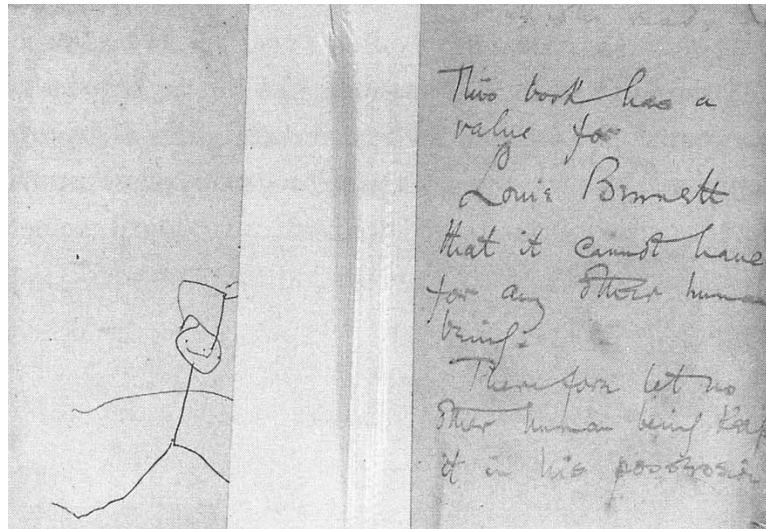 This book has a
value for
Louis Bennett
that it cannot have
for any other human
being.
Therefore let no
other human being keep
it in his possession